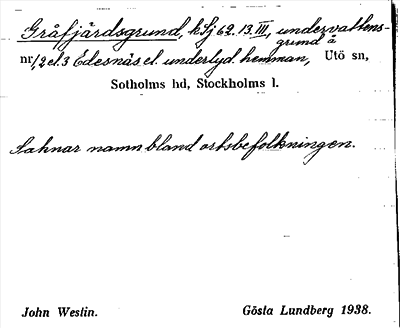 Gråfjärdsgrund, kSj 62.13.III, undervattens-
grund å
nr 1, 2 el. 3 Edesnäs el. underlyd. hemman, Utö sn,
Sotholms hd, Stockholms l.
Saknar namn bland ortsbefolkningen.
John Westin. Gösta Lundberg 1938.